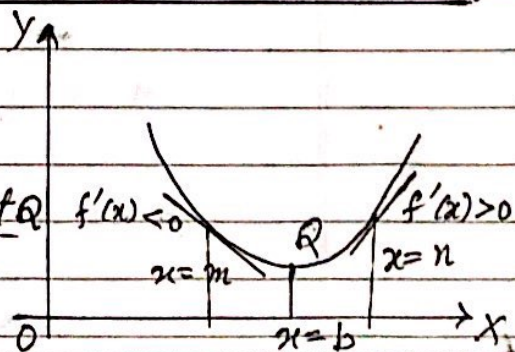 Y
f Q f'(x) < 0 Q f'(x) > 0
x = m x = n
O x = b X